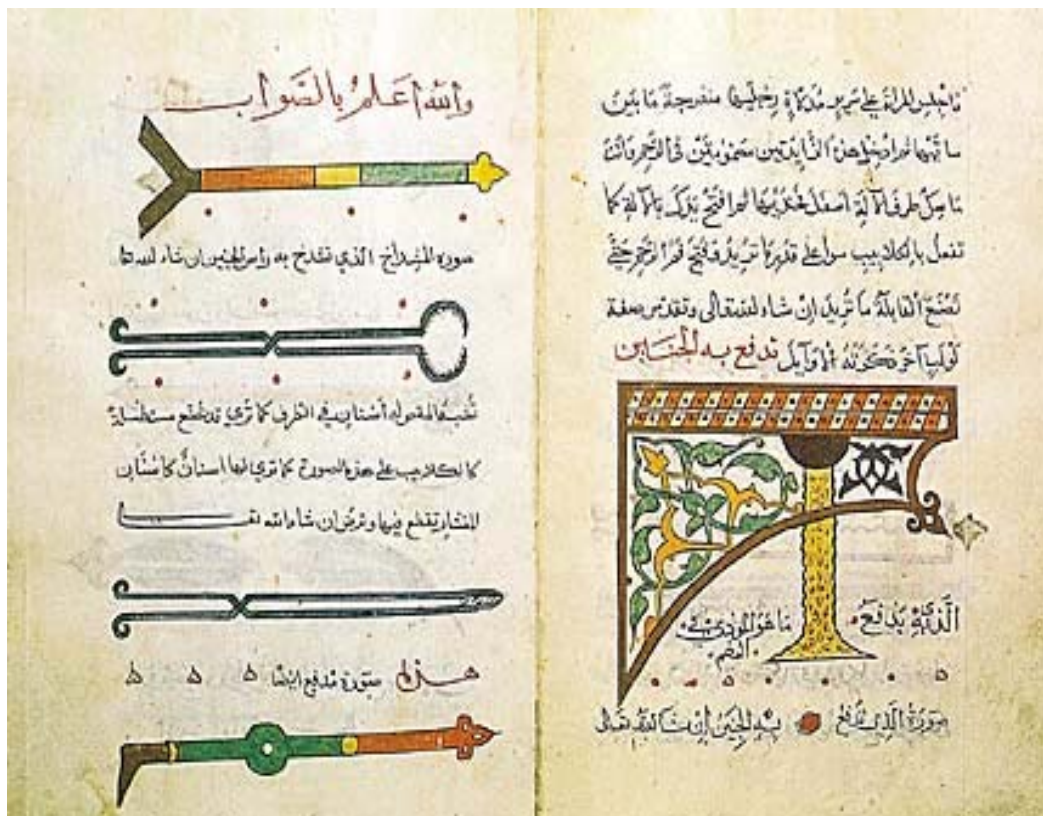 فاجلس المراة على سرير مدلاة رجليها منفرجة ما بين
ساقيها ثم ادخل هذه الزايدتين مضمومتين في الرحم وانت
ماسك طرف الالة اسفل فخذيها ثم افتح يدك بالالة كما
تفعل بالكلاليب سوا على قدر ما تريد وفتح فم الرحم حتى
تصنع القابلة ما تريد إن شاء الله تعالى وتقدم صفة
لولب آخر ذكرته الأوايل تدفع به الجنين
الذي به يدفع
ما هو
صورة الذي تدفع به الجنين إن شاء الله تعالى
والله أعلم بالصواب
صورة المشداخ الذي تشدخ به رأس الجنين ان شاء الله
أسنان في الطرف كما ترى
كالكلاليب على هذه الصورة كما ترى لها أسنان كأسنان
المنشار يقطع فيها وترض ان شاء الله
هذه صورة مدفع أيضا